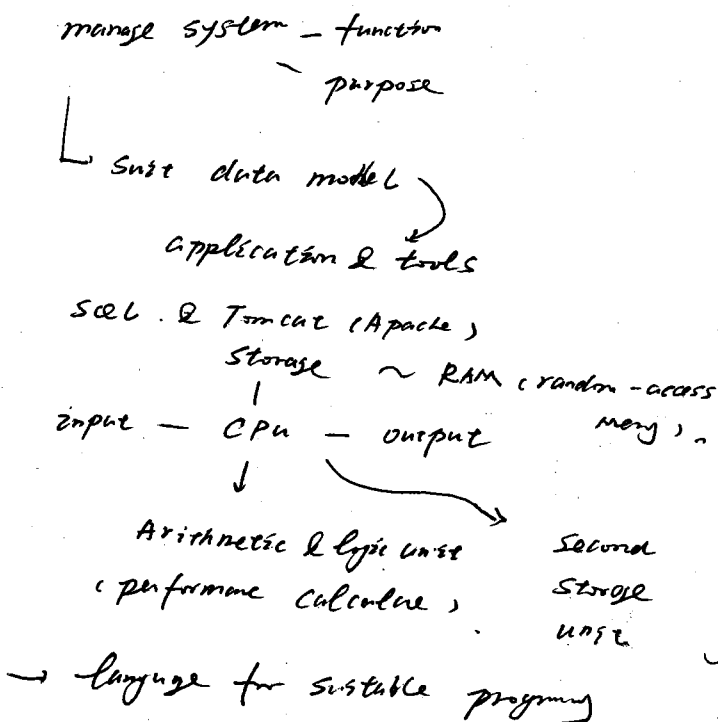 manage system - function
- purpose
suit data model
application & tools
SQL. & Tomcat (Apache)
Storage ~ RAM (random-access
input - CPU - output memy).
Arithmetic & logic unit Second
(performanc calculate). Storage
unit
→ language for suitable programing